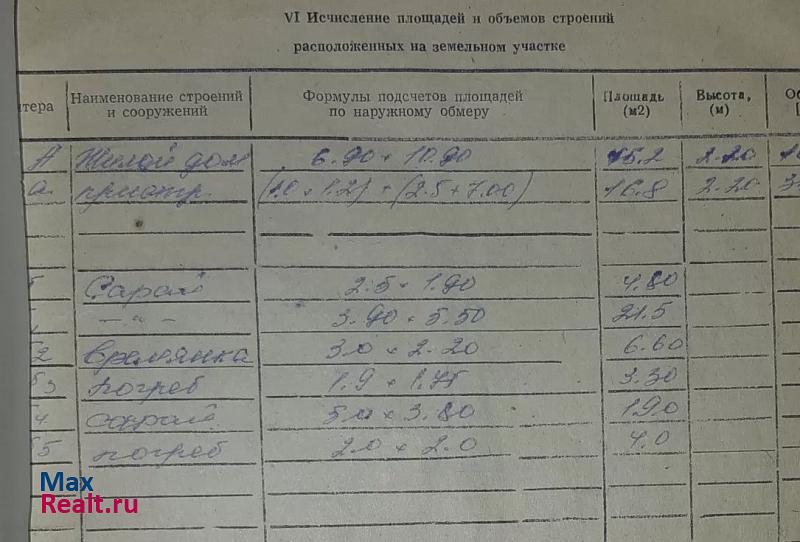 VI Исчисление площадей и объемов строений
расположенных на земельном участке
тера Наименование строений и сооружений Формулы подсчетов площадей по наружному обмеру Площадь (м2) Высота, (м) Об
А Жилой дом 6.90 × 10.90 75.2 2.20
а. пристр. (1.0 × 1.2) + (2.5 × 7.00) 16.8 2.20
Сарай 2.5 × 1.90 4.80
— " — 3.90 × 5.50 21.5
2 времянка 3.0 × 2.20 6.60
3 погреб 1.9 × 1.75 3.30
4 сарай 5.0 × 3.80 19.0
5 погреб 2.0 × 2.0 4.0
Max
Realt.ru